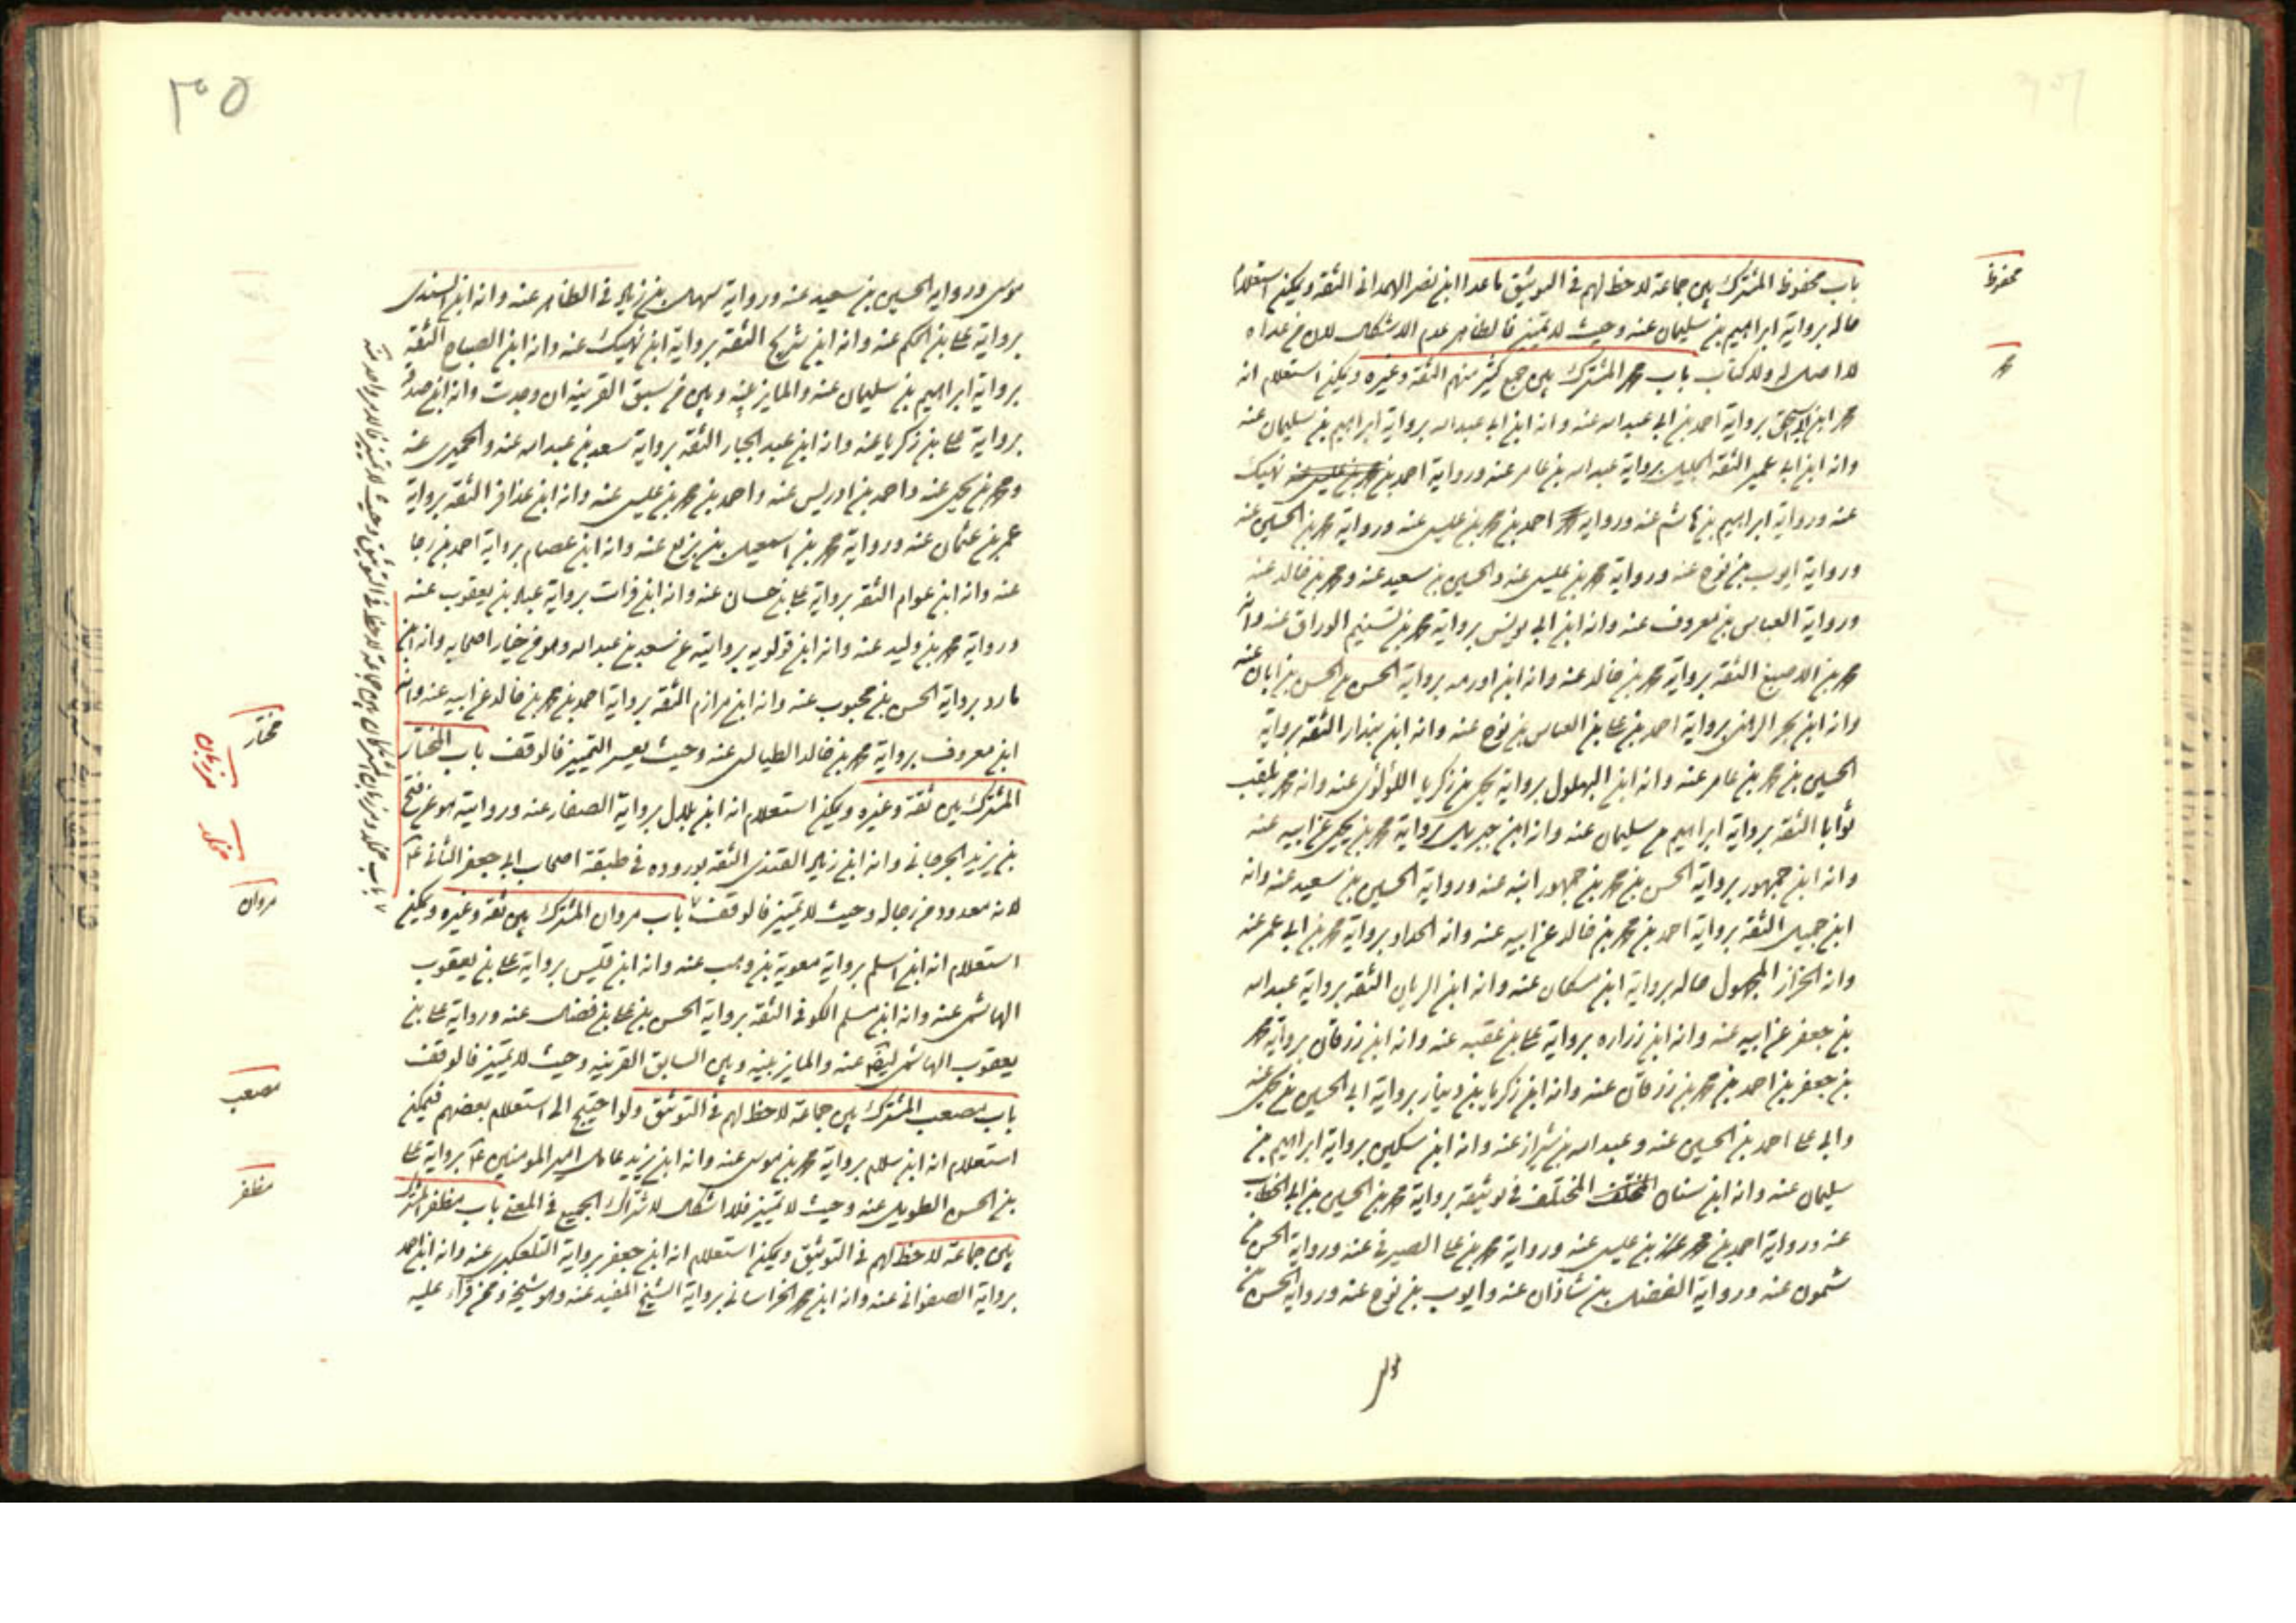 محفوظ
باب محفوظ المشترك بين جماعة لا حظ لهم في التوثيق ما عدا ابن نصر الهمداني الثقة ويمكن استعلام
حاله برواية ابراهيم بن سليمان عنه وحيث لا تمييز فالظاهر عدم الاشكال لان من عداه
محمد
لا اصل له ولا كتاب باب محمد المشترك بين جمع كثير منهم الثقة وغيره ويمكن استعلام انه
محمد ابن ابي اسحق برواية احمد بن ابي عبدالله عنه وانه ابن ابي عبدالله برواية ابراهيم بن سليمان عنه
وانه ابن ابي عمير الثقة الجليل برواية عبدالله بن عامر عنه ورواية احمد بن نهيك
عنه ورواية ابراهيم بن هاشم عنه ورواية احمد بن محمد بن عيسى عنه ورواية محمد بن الحسين عنه
ورواية ايوب بن نوح عنه ورواية محمد بن عيسى عنه والحسين بن سعيد عنه ومحمد بن خالد عنه
ورواية العباس بن معروف عنه وانه ابن ابي يونس برواية محمد بن تسنيم الوراق عنه وانه
محمد بن الاصبغ الثقة برواية محمد بن خالد عنه وانه ابن اورمه برواية الحسين بن الحسن بن ابان عنه
وانه ابن بحر الرهني برواية احمد بن علي بن العباس بن نوح عنه وانه ابن بندار الثقة برواية
الحسين بن محمد بن عامر عنه وانه ابن البهلول برواية يحيى بن زكريا اللؤلؤي عنه وانه محمد يلقب
ثوابا الثقة برواية ابراهيم بن سليمان عنه وانه ابن جبريل برواية محمد بن يحيى عن ابيه عنه
وانه ابن جمهور برواية الحسن بن محمد بن جمهور ابنه عنه ورواية الحسين بن سعيد عنه وانه
ابن جميل الثقة برواية احمد بن محمد بن خالد عن ابيه عنه وانه الحداد برواية محمد بن ابي عمر عنه
وانه الخزاز المجهول حاله برواية ابن مسكان عنه وانه ابن الريان الثقة برواية عبدالله
بن جعفر عن ابيه عنه وانه ابن زراره برواية علي بن عقبه عنه وانه ابن زرقان برواية محمد
بن جعفر بن احمد بن محمد بن زرقان عنه وانه ابن زكريا بن دينار برواية ابي الحسين بن يحيى عنه
وابي علي احمد بن الحسين عنه وعبدالله بن شيراز عنه وانه ابن سكين برواية ابراهيم بن
سليمان عنه وانه ابن سنان المختلف في توثيقه برواية محمد بن الحسين بن ابي الخطاب
عنه ورواية احمد بن محمد بن عيسى عنه ورواية محمد بن علي الصيرفي عنه ورواية الحسن بن
شمون عنه ورواية الفضل بن شاذان عنه وايوب بن نوح عنه ورواية الحسن بن
٣٠٥
موسى ورواية الحسين بن سعيد عنه ورواية سهل بن زياد في الظاهر عنه وانه ابن السندي
برواية علي بن الحكم عنه وانه ابن شريح الثقة برواية ابن نهيك عنه وانه ابن الصباح الثقة
برواية ابراهيم بن سليمان عنه والمايز بينه وبين من سبق القرينه ان وجدت وانه ابن صدقه
برواية علي بن زكريا عنه وانه ابن عبد الجبار الثقة برواية سعد بن عبدالله عنه والحميري عنه
ومحمد بن يحيى عنه واحمد بن ادريس عنه واحمد بن محمد بن عيسى عنه وانه ابن عذافر الثقة برواية
عمر بن عثمان عنه ورواية محمد بن اسمعيل بن بزيع عنه وانه ابن عصام برواية احمد بن رجا
عنه وانه ابن عوام الثقة برواية علي بن حسان عنه وانه ابن فرات برواية عباد بن يعقوب عنه
ورواية محمد بن وليد عنه وانه ابن قولويه بروايته عن سعد بن عبدالله وهو من خيار اصحابه وانه ابن
مارد برواية الحسن بن محبوب عنه وانه ابن مرازم الثقة برواية احمد بن محمد بن خالد عن ابيه عنه وانه
مختار
ابن معروف برواية محمد بن خالد الطيالسي عنه وحيث يعسر التمييز فالوقف باب المختار
مرزبان
المشترك بين ثقة وغيره ويمكن استعلام انه ابن بلال برواية الصفار عنه وروايته هو عن فتح
مخلد
بن يزيد الجرجاني وانه ابن زياد القندي الثقة بوروده في طبقة اصحاب ابي جعفر الثاني ع
مروان
لانه معدود من رجاله وحيث لا تمييز فالوقف باب مروان المشترك بين ثقة وغيره ويمكن
استعلام انه ابن اسلم برواية معوية بن وهب عنه وانه ابن قيس برواية علي بن يعقوب
الهاشمي عنه وانه ابن مسلم الكوفي الثقة برواية الحسن بن علي بن فضال عنه ورواية علي بن
يعقوب الهاشمي عنه والمايز بينه وبين السابق القرينه وحيث لا تمييز فالوقف
مصعب
باب مصعب المشترك بين جماعة لا حظ لهم في التوثيق ولو احتيج الى استعلام بعضهم فيمكن
استعلام انه ابن سلام برواية محمد بن موسى عنه وانه ابن يزيد عامل امير المومنين ع برواية علي
مظفر
بن الحسن الطويل عنه وحيث لا تمييز فلا اشكال لاشتراك الجميع في المعنى باب مظفر المشترك
بين جماعة لا حظ لهم في التوثيق ويمكن استعلام انه ابن جعفر برواية التلعكبري عنه وانه ابن احمد
برواية الصفواني عنه وانه ابن محمد الخراساني برواية الشيخ المفيد عنه وهو شيخه وممن قرأ عليه
باب مخلد ومرزبان المشتركان بين جماعة لا حظ لهم في التوثيق وحيث لا تمييز فالامر واحد